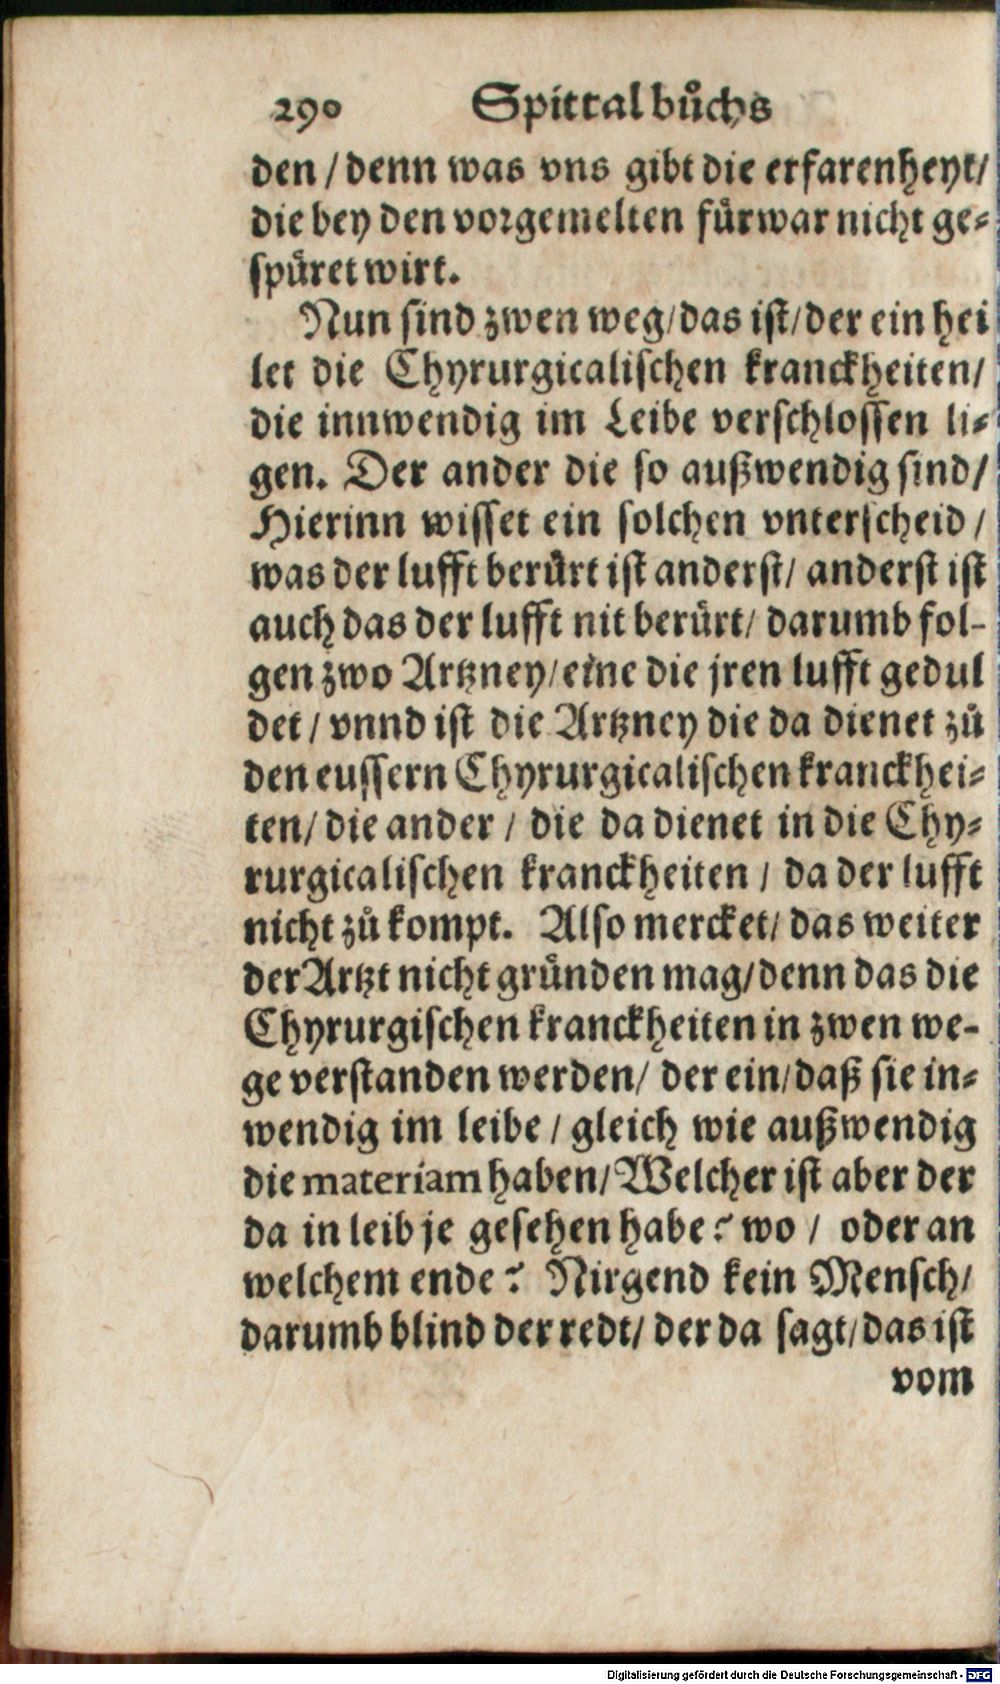 290 Spittal bůchs
den / denn was vns gibt die erfarenheyt/
die bey den vorgemelten fürwar nicht ge⸗
spüret wirt.
Nun sind zwen weg/das ist/der ein hei
let die Chyrurgicalischen kranckheiten/
die innwendig im Leibe verschlossen li⸗
gen. Der ander die so außwendig sind/
Hierinn wisset ein solchen vnterscheid /
was der lufft berürt ist anderst/ anderst ist
auch das der lufft nit berürt/ darumb fol-
gen zwo Artzney/eine die jren lufft gedul
det / vnnd ist die Artzney die da dienet zů
den eussern Chyrurgicalischen kranckhei⸗
ten/ die ander / die da dienet in die Chy⸗
rurgicalischen kranckheiten / da der lufft
nicht zů kompt. Also mercket/ das weiter
der Artzt nicht gründen mag/denn das die
Chyrurgischen kranckheiten in zwen we-
ge verstanden werden/ der ein/daß sie in⸗
wendig im leibe / gleich wie außwendig
die materiam haben/Welcher ist aber der
da in leib je gesehen habe? wo / oder an
welchem ende? Nirgend kein Mensch/
darumb blind der redt/ der da sagt/das ist
vom
Digitalisierung gefördert durch die Deutsche Forschungsgemeinschaft - DFG